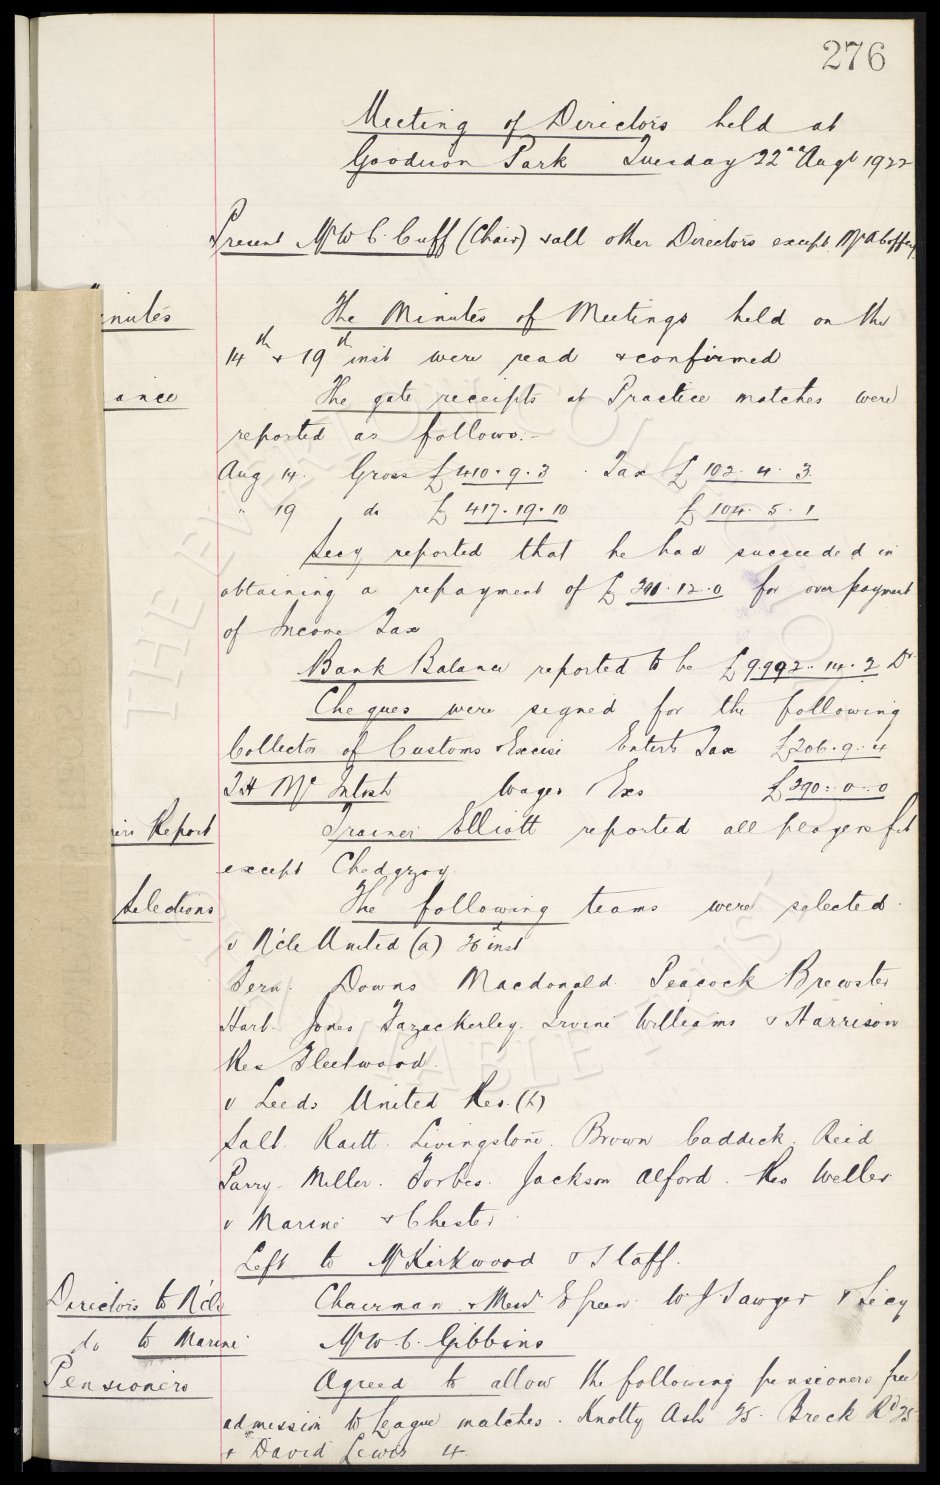 276
Meeting of Directors held at
Goodison Park Tuesday 22nd Augt 1922
Present Mr W C Cuff (Chair) & all other Directors except Mr A Coffey
inutes
The Minutes of Meetings held on the
14th & 19th inst were read & confirmed
ance
The gate receipts at Practice matches were
reported as follows.-
Aug 14. Gross £410.9.3 . Tax £102.4.3
" 19 do £417.19.10 £104.5.1
Secy reported that he had succeeded in
obtaining a repayment of £ .12.0 for over payment
of Income Tax
Bank Balance reported to be £9.992.14.2 Dr
Cheques were signed for the following
Collector of Customs & Excise Enterts Tax £206.9.4
T H McIntosh Wages Exs £290.0.0
Report
Trainer Elliott reported all players fit
except Chedgzoy.
Selections
The following teams were selected.
v N'cle United (a) 26 inst
Fern. Downs Macdonald Peacock Brewster
Hart. Jones Fazackerley. Irvine Williams & Harrison
Res Fleetwood.
v Leeds United Res. (h)
Salt. Raitt. Livingstone. Brown Caddick. Reid
Parry. Miller. Forbes. Jackson Alford. Res Weller
v Marine & Chester
Left to Mr Kirkwood & Staff.
Directors to N'cle
Chairman & Messrs E Green W J Sawyer & Secy
do to Marine
Mr W. C. Gibbins
Pensioners
Agreed to allow the following pensioners free
admission to League matches. Knotty Ash 35. Breck Rd 35
& David Lewis 4.
THE EVERTON COLLECTION
CHARITABLE TRUST